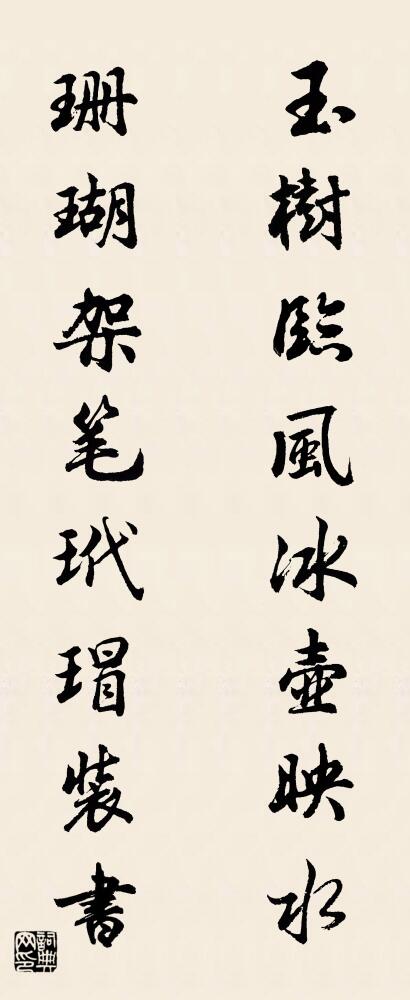 玉樹臨風冰壺映水
珊瑚架笔玳瑁裝書
詞典网印